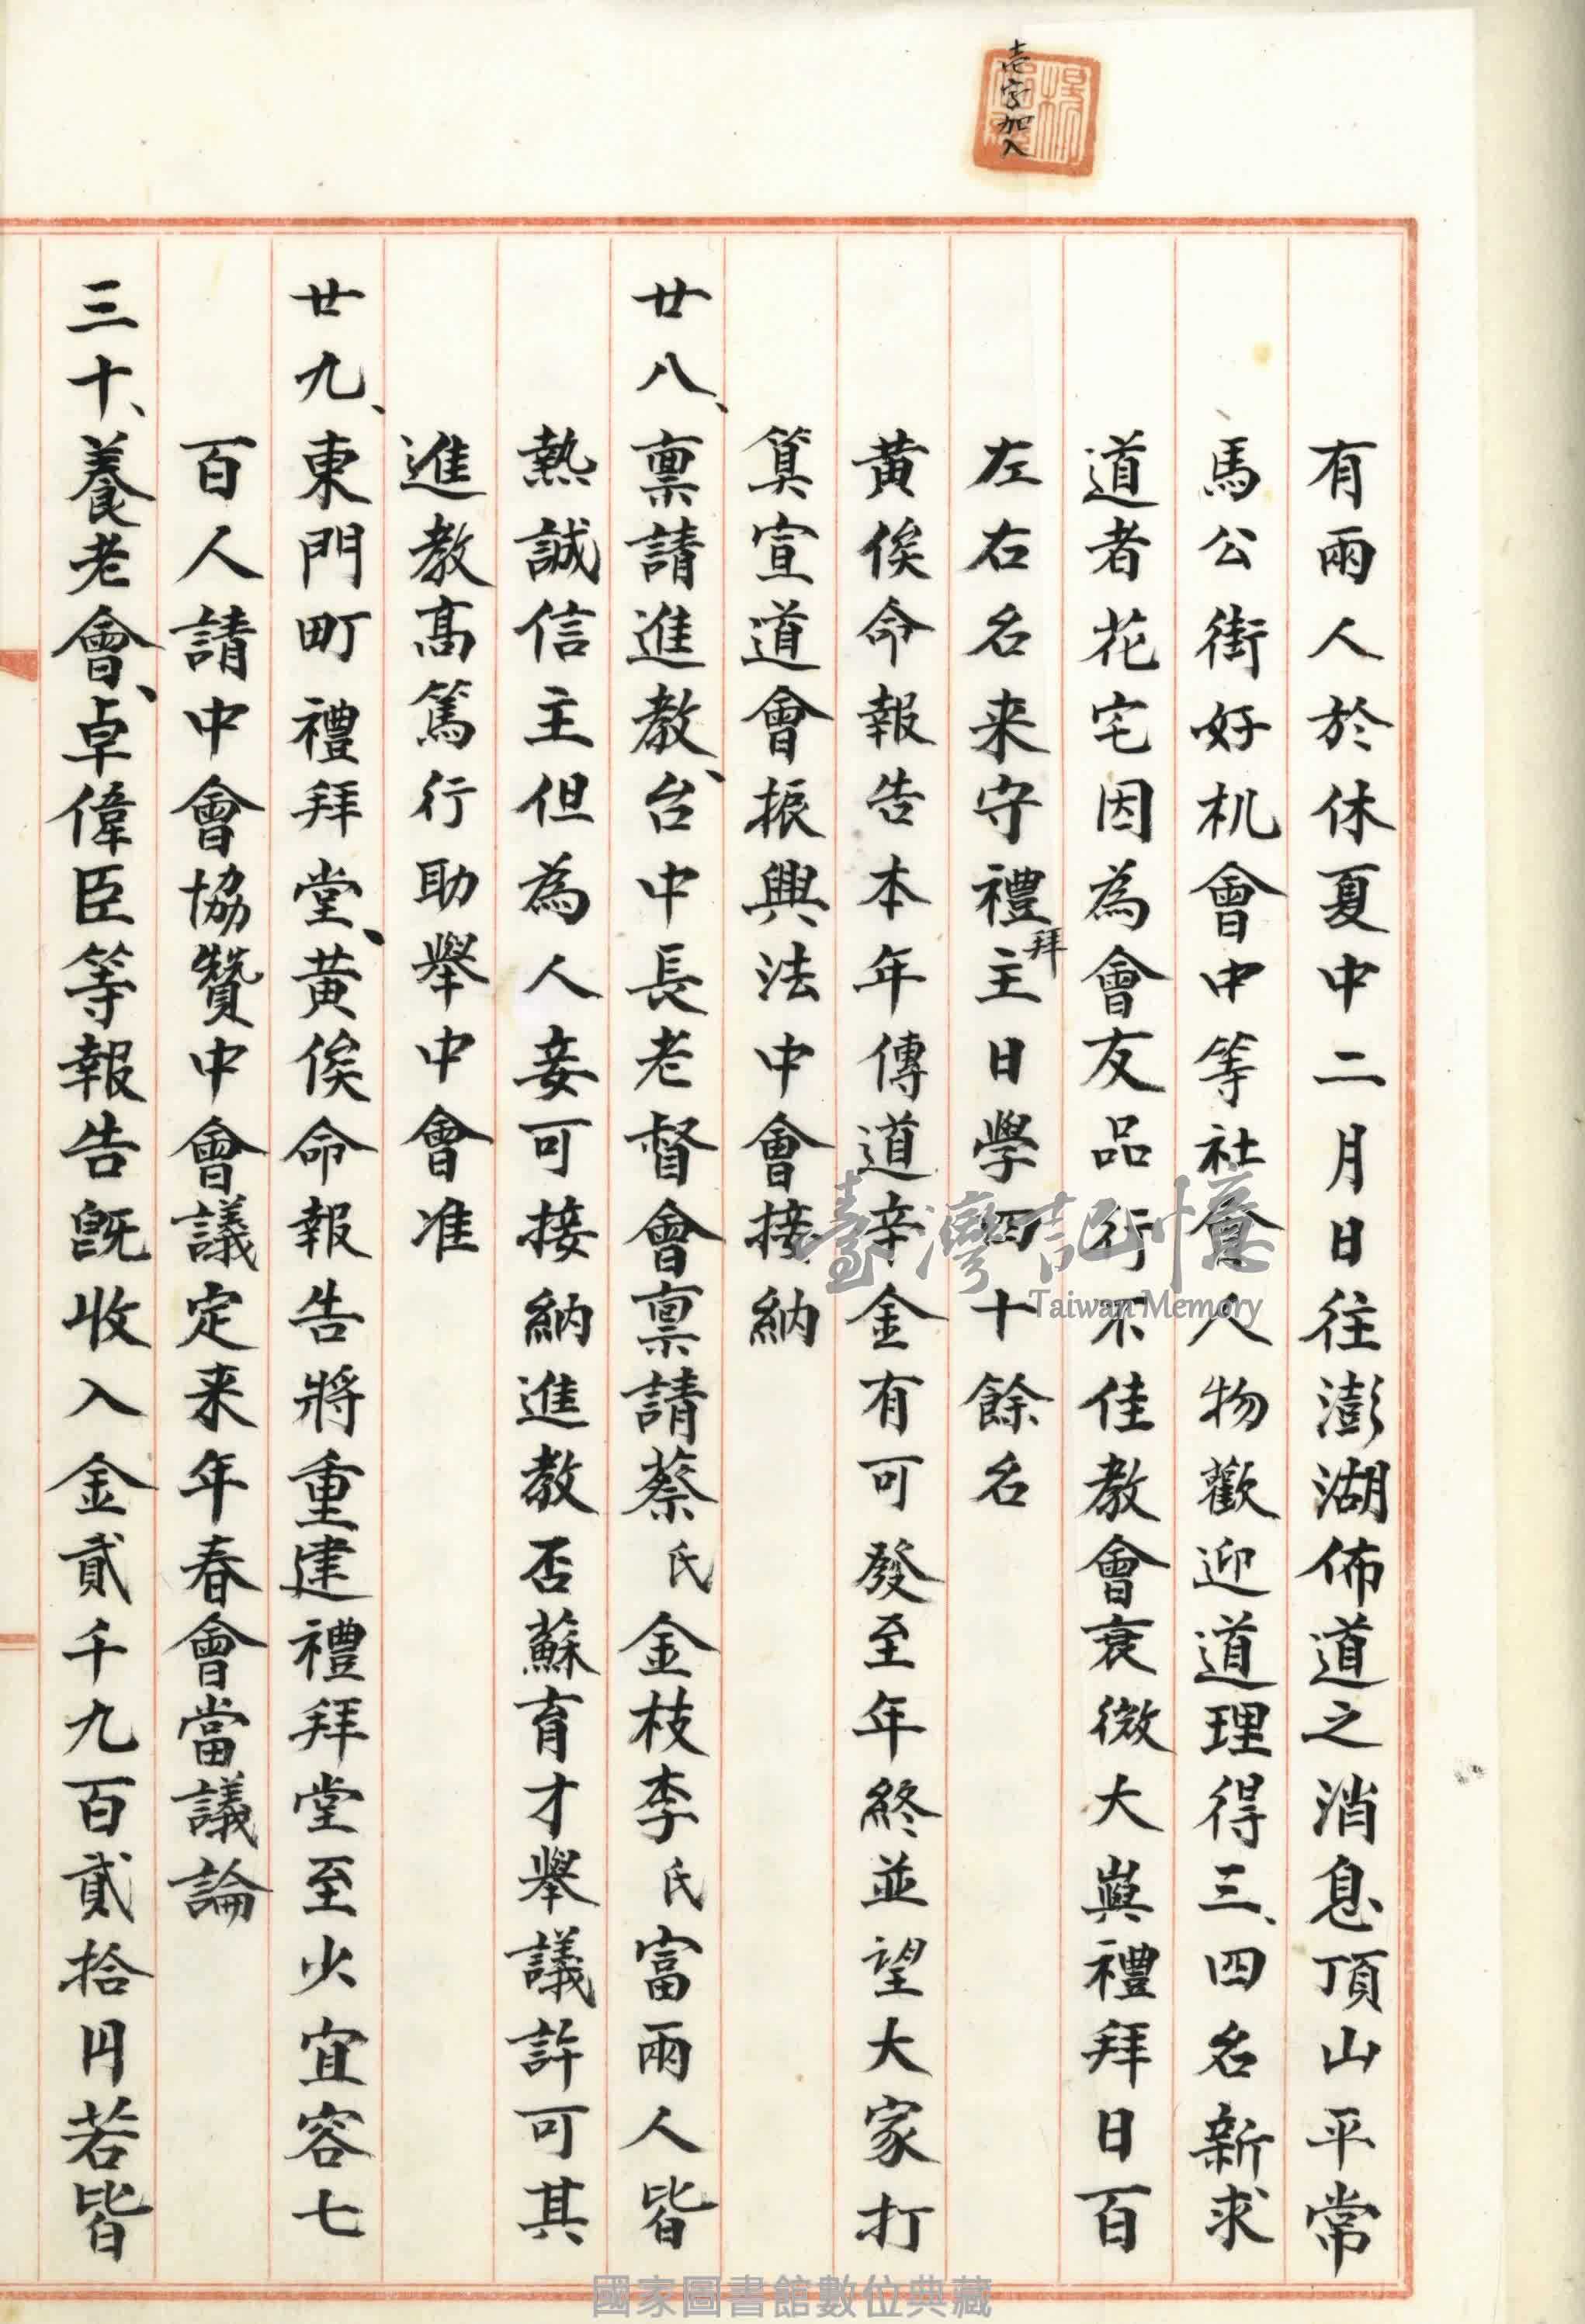 壱字加入
有兩人於休夏中二月日往澎湖佈道之消息頂山平常
馬公街好机會中等社會人物歡迎道理得三、四名新求
道者花宅因為會友品行不佳教會衰微大與禮拜日百
左右名来守禮拜主日學四十餘名
黃俟命報告本年傳道辛金有可發至年終並望大家打
算宣道會振興法中會接納
廿八、禀請進教、台中長老督會禀請蔡氏金枝李氏富兩人皆
熱誠信主但為人妾可接納進教否蘇育才舉議許可其
進教高篤行助舉中會准
廿九、東門町禮拜堂、黃俟命報告將重建禮拜堂至少宜容七
百人請中會協贊中會議定来年春會當議論
三十、養老會、卓偉臣等報告既收入金貳千九百貳拾円若皆
臺灣記憶
Taiwan Memory
國家圖書館數位典藏